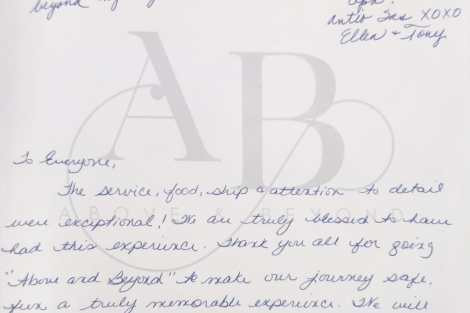 beyond
until Dec XOXO
Ellen & Tony
AB
ABOVE & BEYOND
To Everyone,
The service, food, ship & attention to detail
were exceptional! We are truly blessed to have
had this experience. Thank you all for going
"Above and Beyond" to make our journey safe,
fun & truly memorable experience. We will